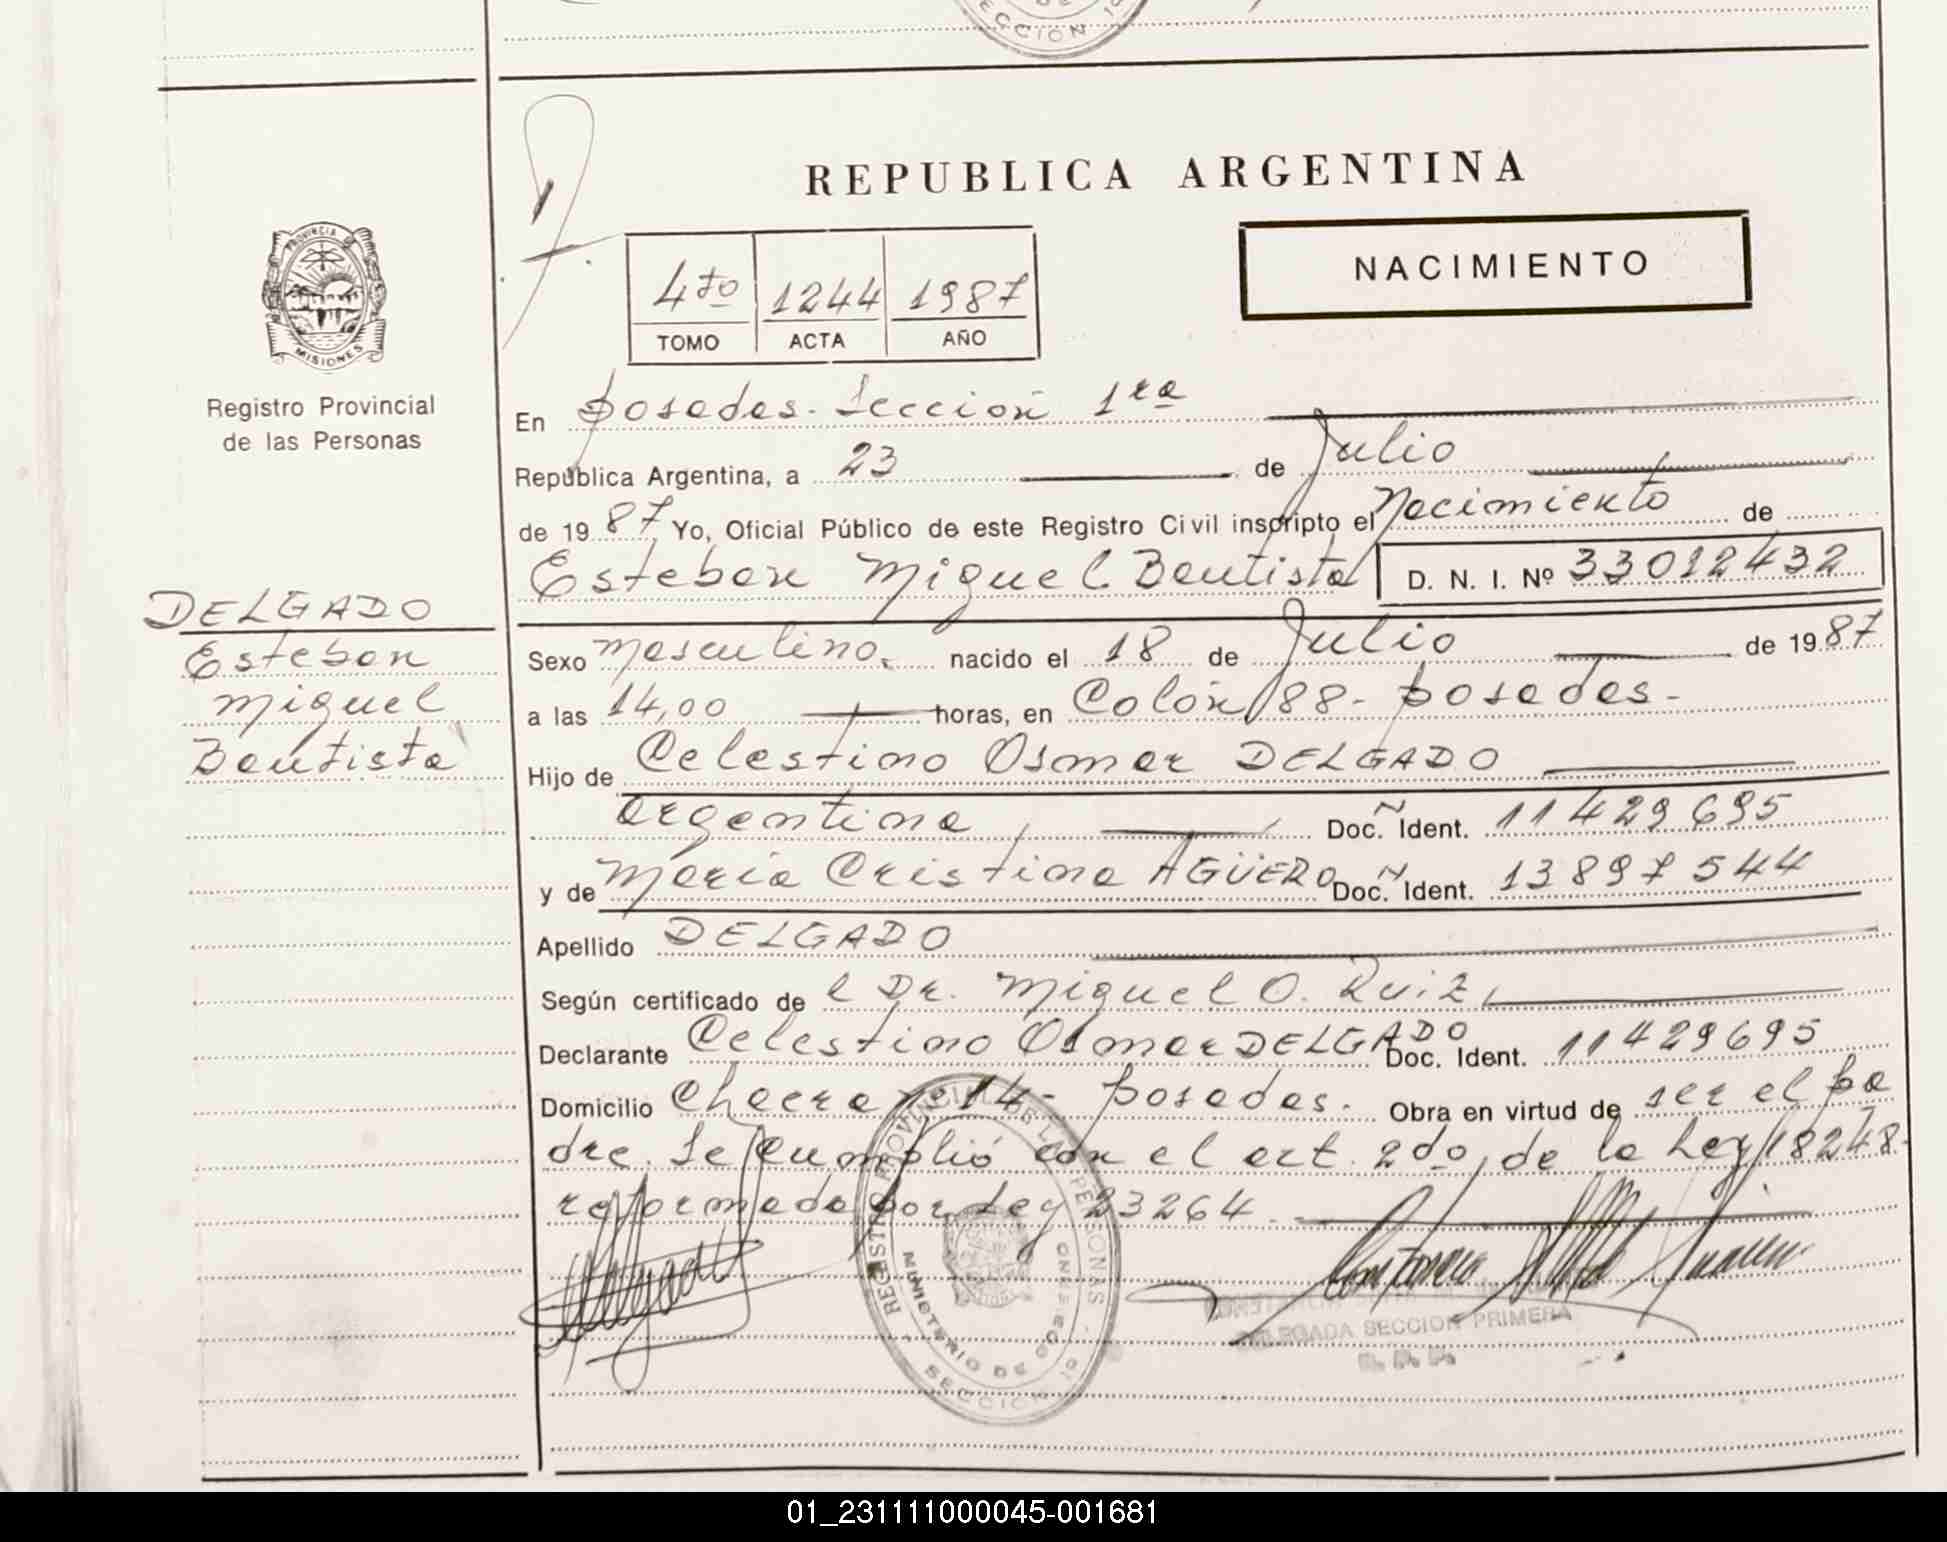 SECCION 1
REPUBLICA ARGENTINA
PROVINCIA
MISIONES
Registro Provincial
de las Personas
NACIMIENTO
4to 1244 1987
TOMO ACTA AÑO
En Posadas. Sección 1ra
Republica Argentina, a 23 de Julio
de 1987 Yo, Oficial Público de este Registro Civil inscripto el Nacimiento de
Esteban Miguel Bautista D. N. I. Nº 33012432
DELGADO
Esteban
Miguel
Bautista
Sexo Masculino. nacido el 18 de Julio de 1987
a las 14,00 horas, en Colón 188- Posadas-
Hijo de Celestino Osmar DELGADO
argentino, Doc. Ident. 11429695
y de María Cristina AGÜERO Doc. Ident. 13897544
Apellido DELGADO
Según certificado de l Dr. Miguel O. Ruiz,
Declarante Celestino Osmar DELGADO Doc. Ident. 11429695
Domicilio Chacra nº 14- Posadas. Obra en virtud de ser el pa
dre. Se cumplió con el art. 2do, de la Ley 18248-
reformada por Ley 23264.
REGISTRO PROVINCIAL DE LAS PERSONAS
MINISTERIO DE GOBIERNO
SECCION 1º
DELEGADA SECCION PRIMERA
01_231111000045-001681